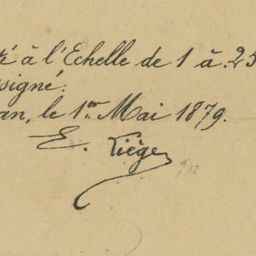 à l'Echelle de 1 à 25
signé:
an, le 1er Mai 1879.
E. Liège